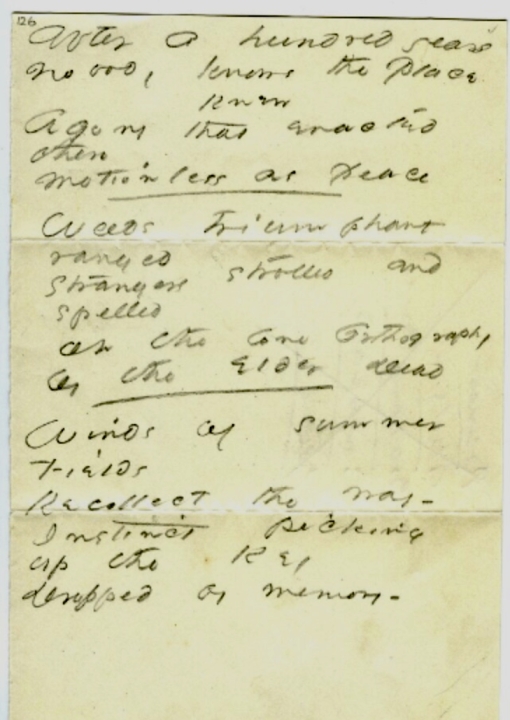 126
After a hundred years
no one, knows the place
knew
Agony that enacted
there
motionless as Peace
Weeds Triumphant
ranged
Strangers strolled and
spelled
at the lone Orthography
of the Elder dead
Winds of summer
Fields
Recollect the way -
Instinct picking
up the Key
dropped by memory -